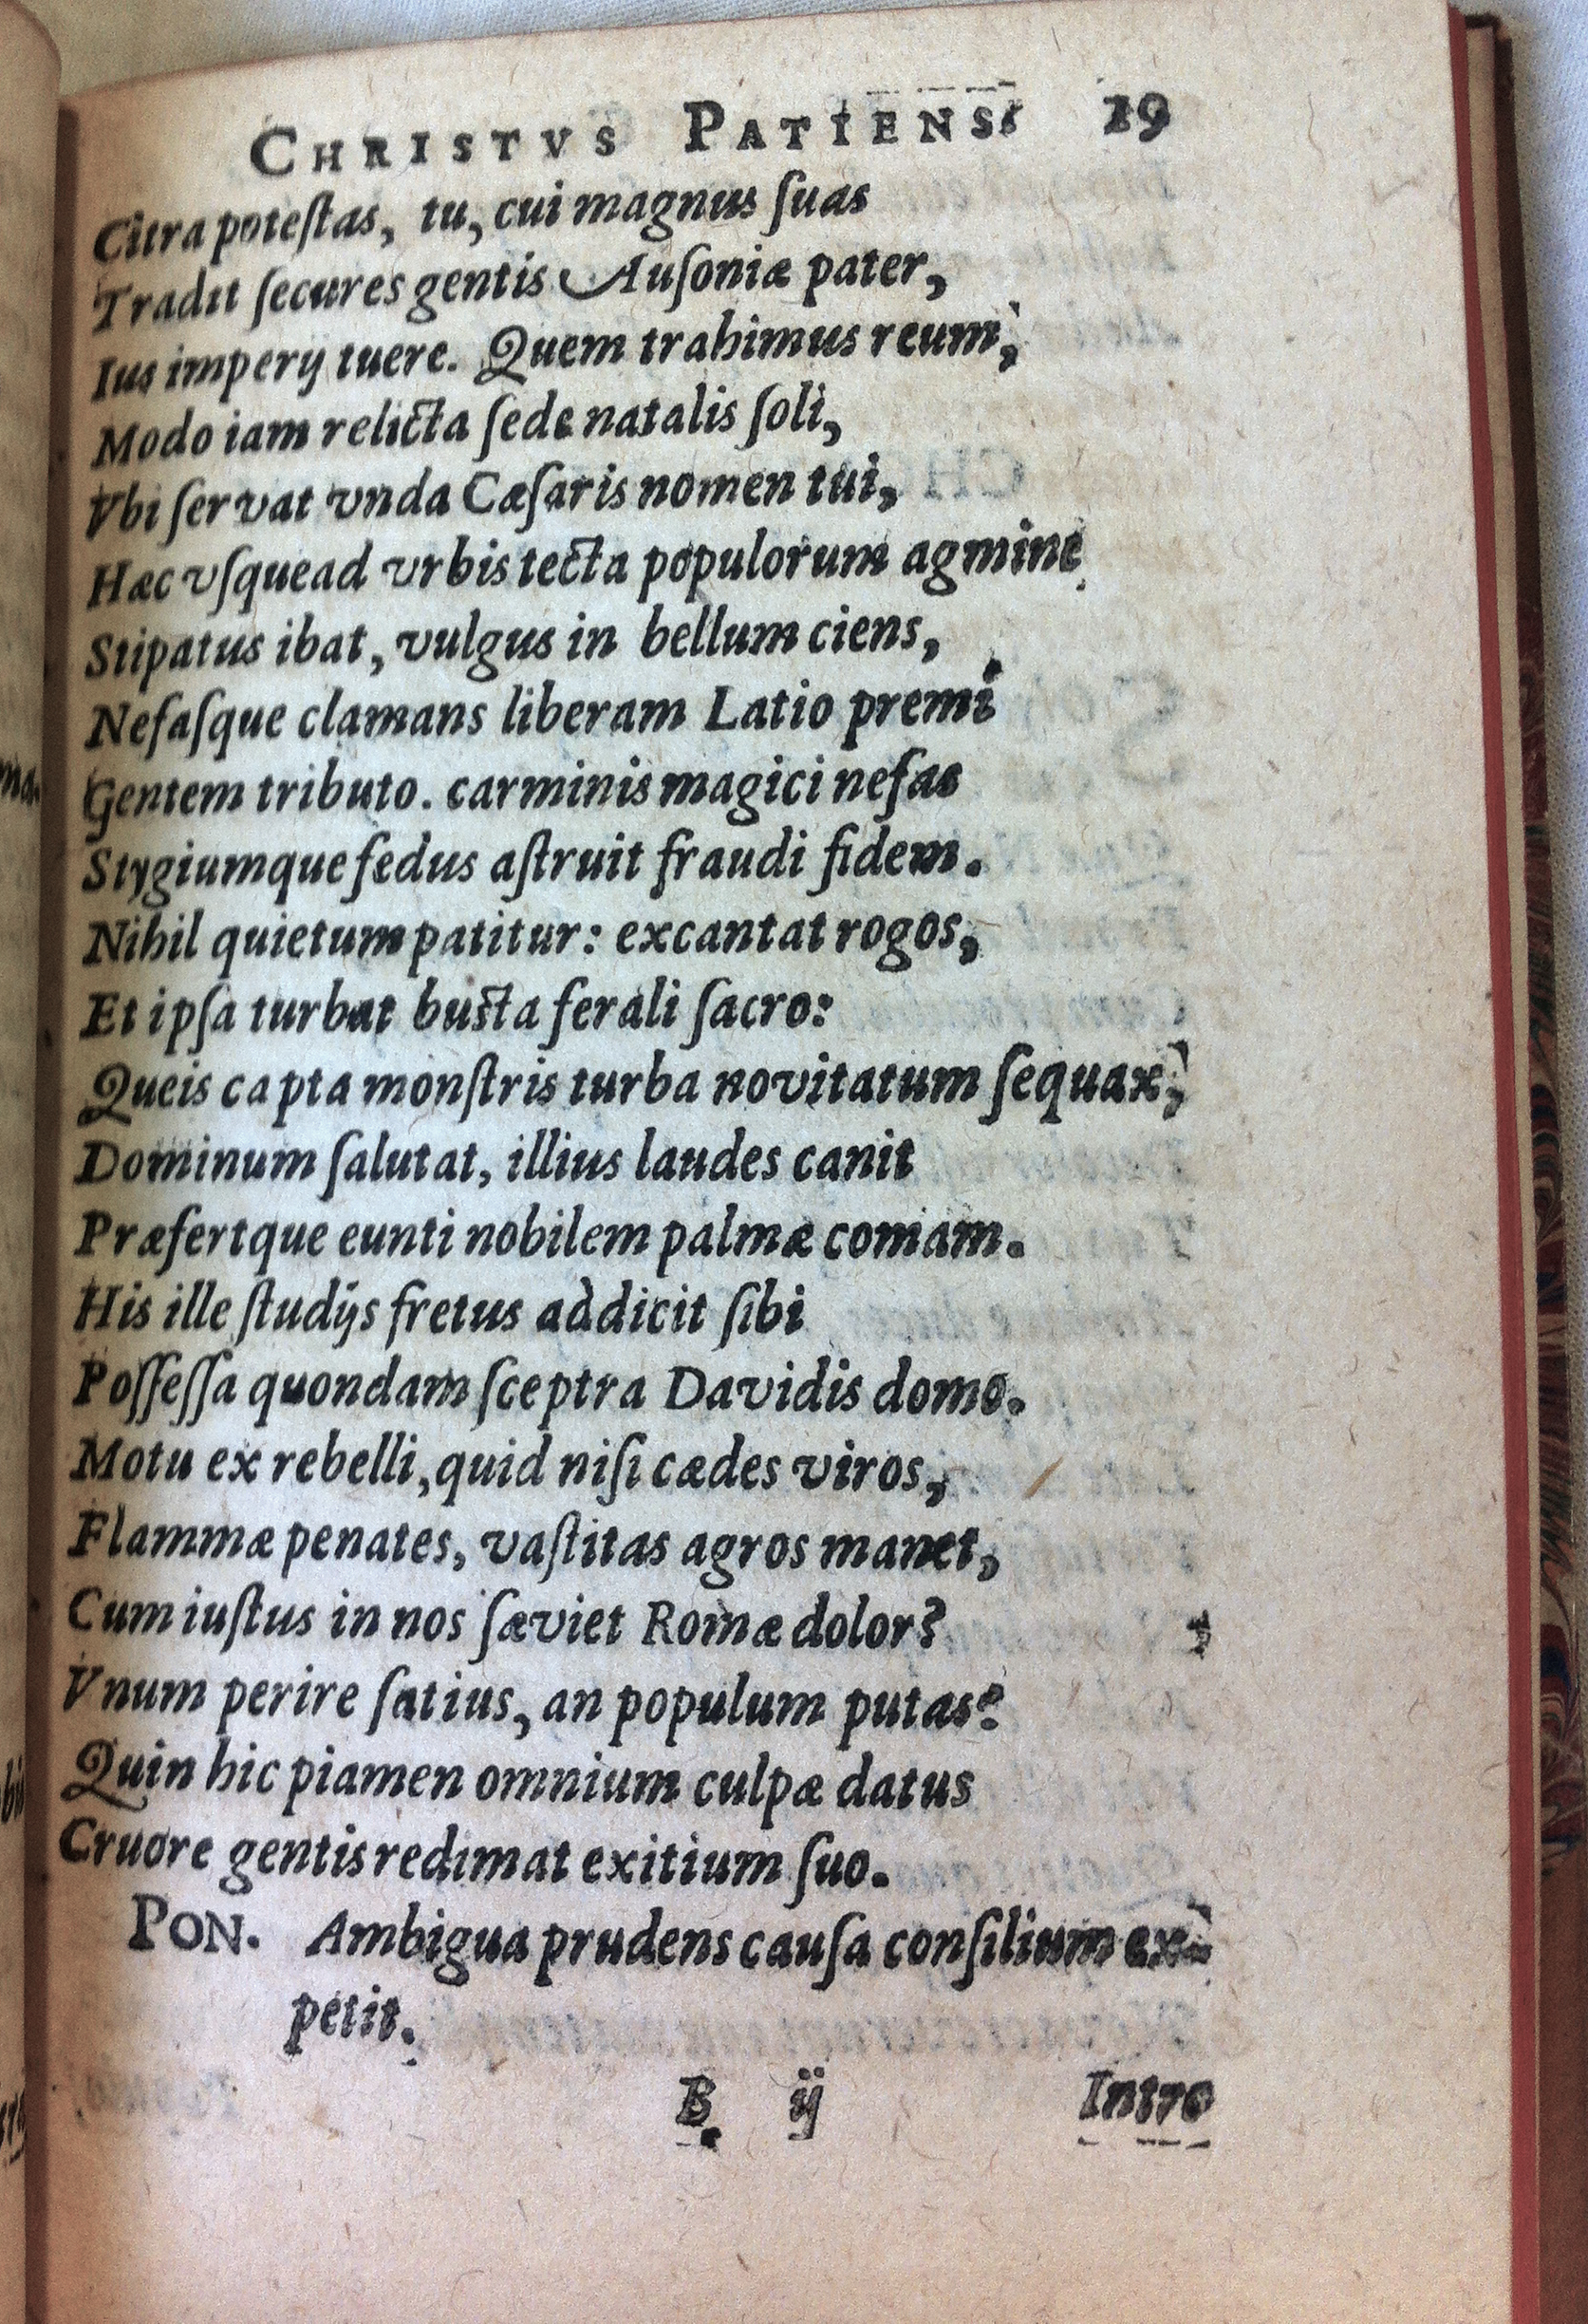 CHRISTVS PATIENS. 19
Citra poteſtas, tu, cui magnus ſuas
Tradit ſecures gentis Auſoniæ pater,
Ius imperij tuere. Quem trahimus reum,
Modo iam relicta ſede natalis ſoli,
Vbi ſervat vnda Cæſaris nomen tui,
Hæc vſquead vrbis tecta populorum agmine
Stipatus ibat, vulgus in bellum ciens,
Nefaſque clamans liberam Latio premi
Gentem tributo. carminis magici nefas
Stygiumque fedus aſtruit fraudi fidem.
Nihil quietum patitur: excantat rogos,
Et ipſa turbat buſta ferali ſacro:
Queis capta monſtris turba novitatum ſequax,
Dominum ſalutat, illius laudes canit
Præfertque eunti nobilem palmæ comam.
His ille ſtudijs fretus addicit ſibi
Poſſeſſa quondam ſceptra Davidis domo.
Motu ex rebelli, quid niſi cædes viros,
Flammæ penates, vaſtitas agros manet,
Cum iuſtus in nos ſæviet Romæ dolor?
Vnum perire ſatius, an populum putas?
Quin hic piamen omnium culpæ datus
Cruore gentis redimat exitium ſuo.
PON. Ambigua prudens cauſa conſilium ex-
petit.
B ij Intro